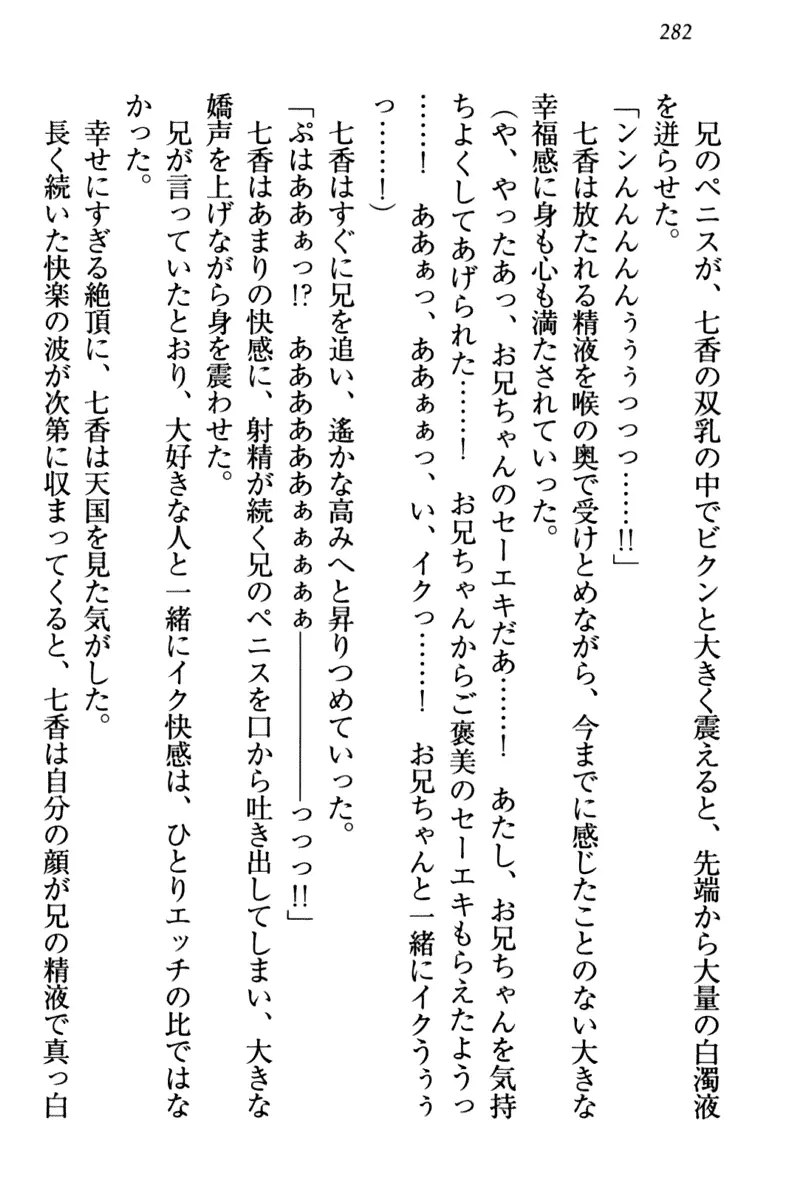 282
兄のペニスが、七香の双乳の中でビクンと大きく震えると、先端から大量の白濁液
を迸らせた。
「ンンんんんんぅぅぅっっっ……!!」
七香は放たれる精液を喉の奥で受けとめながら、今までに感じたことのない大きな
幸福感に身も心も満たされていった。
(や、やったあっ、お兄ちゃんのセーエキだあ……！　あたし、お兄ちゃんを気持
ちよくしてあげられた……！　お兄ちゃんからご褒美のセーエキもらえたようっ
……！　ああぁっ、ああぁぁっ、い、イクっ……！　お兄ちゃんと一緒にイクうぅぅ
っ……！)
七香はすぐに兄を追い、遙かな高みへと昇りつめていった。
「ぷはああぁっ!?　ああああああぁぁぁぁぁ――――――っっっ!!」
七香はあまりの快感に、射精が続く兄のペニスを口から吐き出してしまい、大きな
嬌声を上げながら身を震わせた。
兄が言っていたとおり、大好きな人と一緒にイク快感は、ひとりエッチの比ではな
かった。
幸せにすぎる絶頂に、七香は天国を見た気がした。
長く続いた快楽の波が次第に収まってくると、七香は自分の顔が兄の精液で真っ白